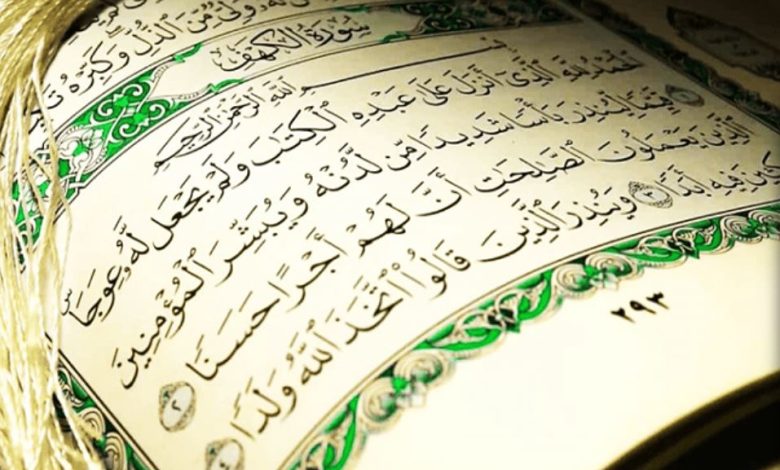 وَلِىٌّ مِّنَ ٱلذُّلِّ ۖ وَكَبِّرْهُ
سُورَةُ الكَهْفِ
بِسْمِ ٱللَّهِ ٱلرَّحْمَٰنِ ٱلرَّحِيمِ
ٱلْحَمْدُ لِلَّهِ ٱلَّذِىٓ أَنزَلَ عَلَىٰ عَبْدِهِ ٱلْكِتَٰبَ وَلَمْ يَجْعَل لَّهُۥ عِوَجَاۜ
١ قَيِّمًا لِّيُنذِرَ بَأْسًا شَدِيدًا مِّن لَّدُنْهُ وَيُبَشِّرَ ٱلْمُؤْمِنِينَ
ٱلَّذِينَ يَعْمَلُونَ ٱلصَّٰلِحَٰتِ أَنَّ لَهُمْ أَجْرًا حَسَنًا ٢
فِيهِ أَبَدًا ٣ وَيُنذِرَ ٱلَّذِينَ قَالُوا۟ ٱتَّخَذَ ٱللَّهُ وَلَدًا ٤
٢٩٣